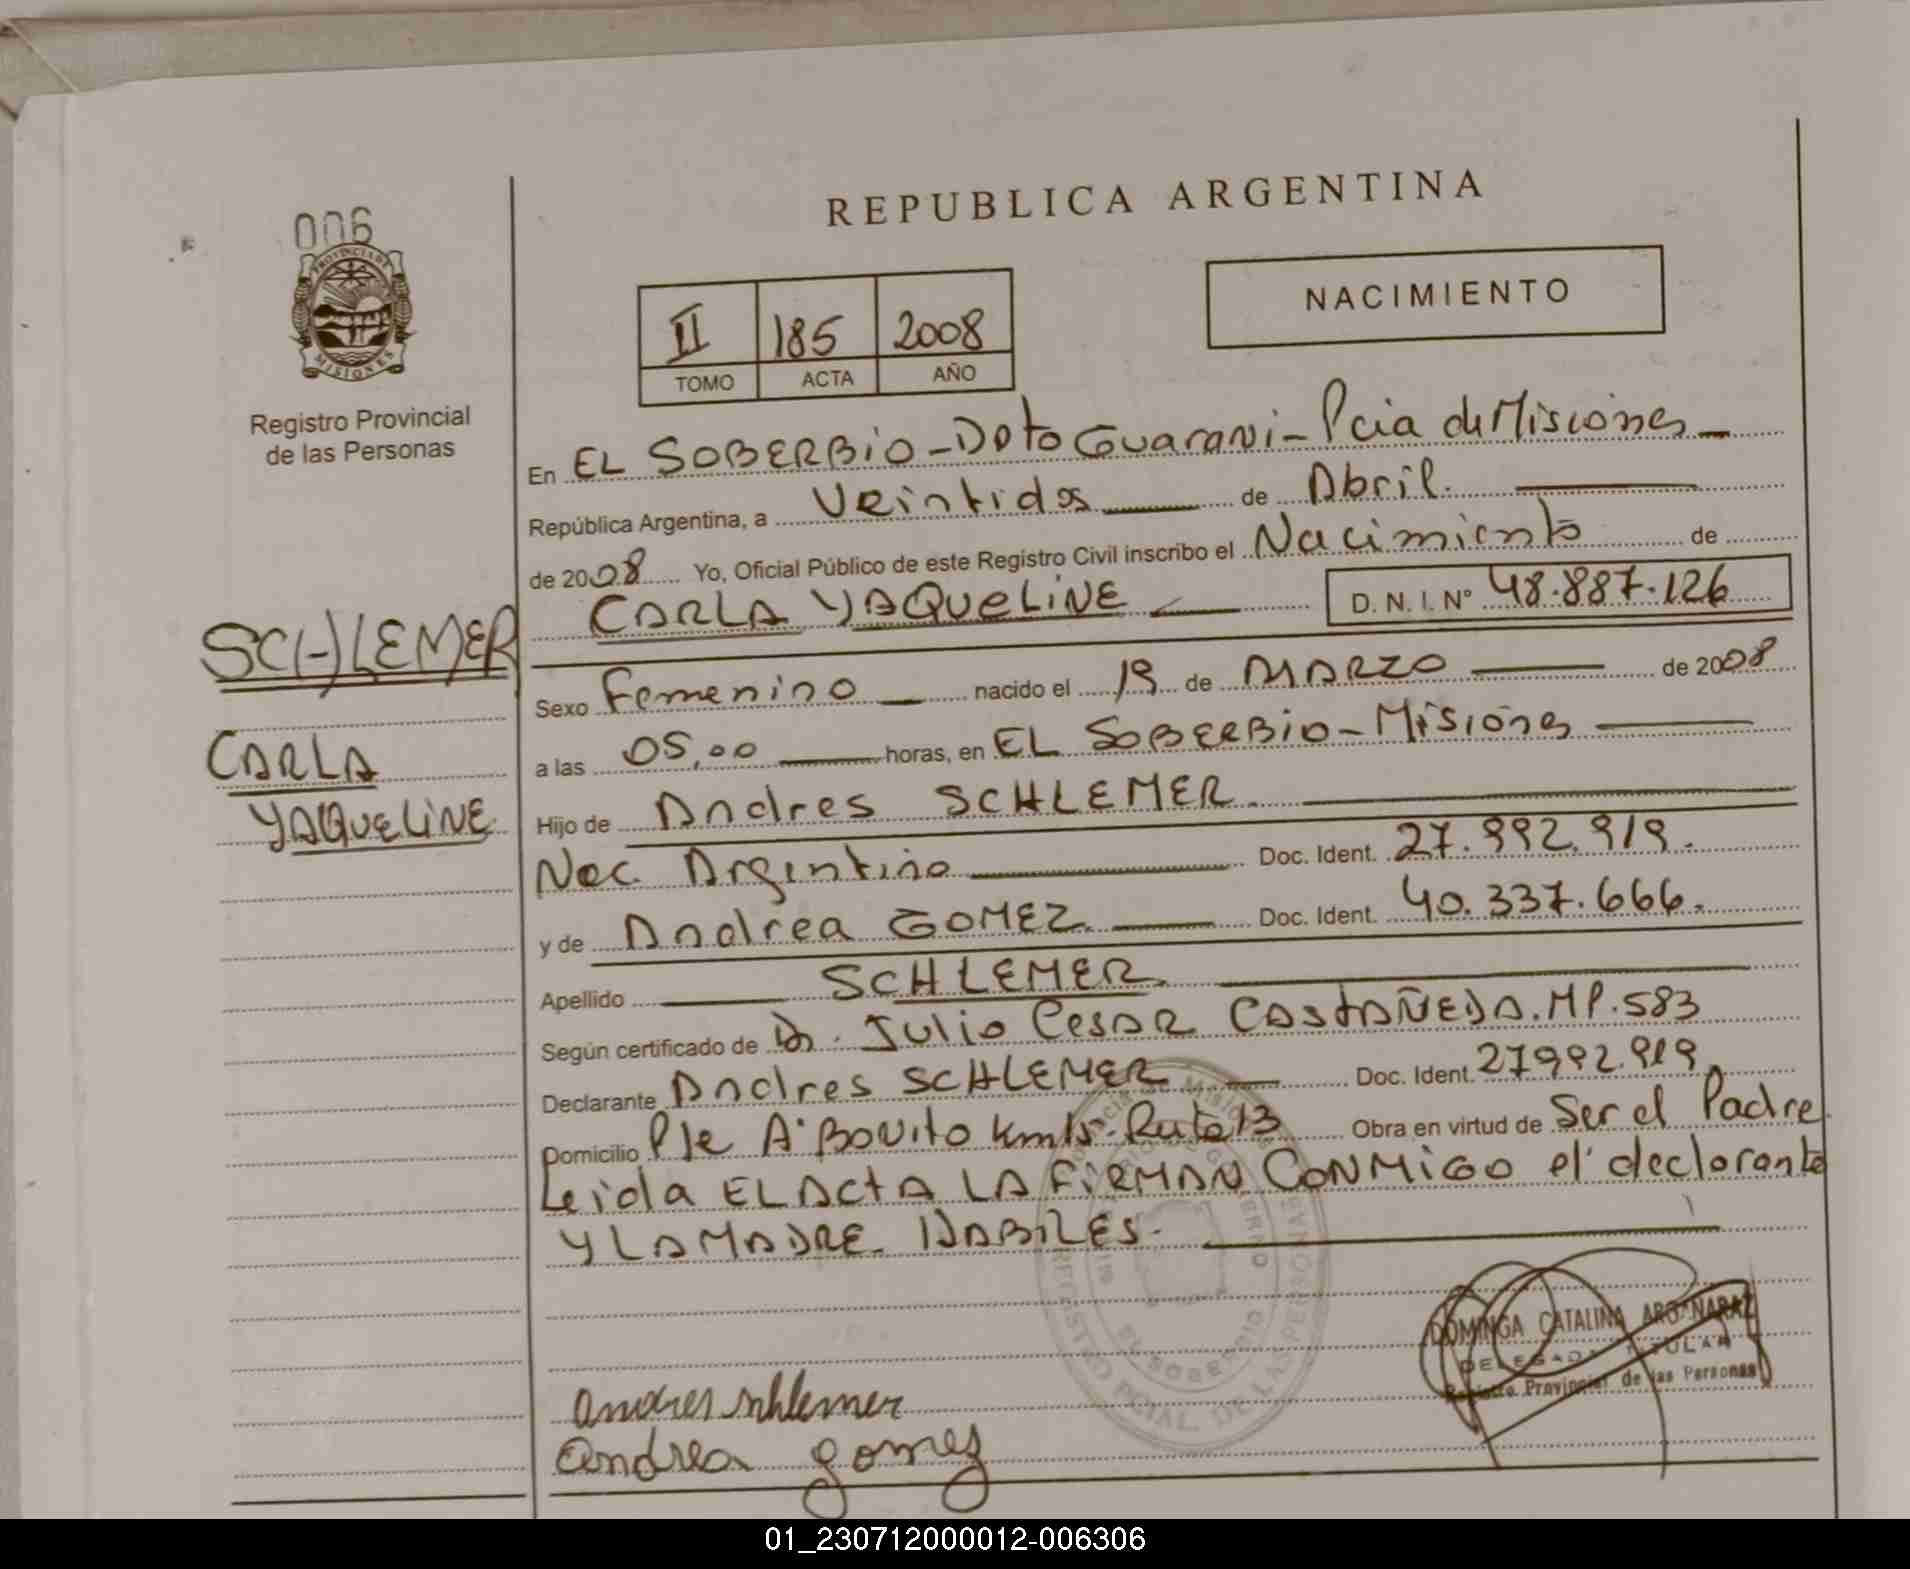 006
PROVINCIA DE
MISIONES
Registro Provincial
de las Personas
REPUBLICA ARGENTINA
NACIMIENTO
II 185 2008
TOMO ACTA AÑO
En EL SOBERBIO - Dpto Guarani - Pcia de Misiones
República Argentina, a Veintidos de Abril.
de 2008 Yo, Oficial Público de este Registro Civil inscribo el Nacimiento de
CARLA YAQUELINE D. N. I. Nº 48.887.126
SCHLEMER
CARLA
YAQUELINE
Sexo Femenino nacido el 19 de MARZO de 2008
a las 05,00 horas, en EL SOBERBIO - Misiones
Hijo de Andres SCHLEMER.
Nac. Argentino Doc. Ident. 27.992.919.
y de Andrea GOMEZ. Doc. Ident. 40.337.666.
Apellido SCHLEMER.
Según certificado de Dr. Julio Cesar CASTAÑEDA. MP. 583
Declarante Andres SCHLEMER Doc. Ident. 27992.919
Domicilio Pje Aº BONITO Ruta 13 Obra en virtud de Ser el Padre.
Leida EL ACTA LA FIRMAN CONMIGO el declarante
Y LA MADRE HABILES.
REGISTRO PCIAL. DE LAS PERSONAS
EL SOBERBIO
DOMINGA CATALINA ARGAÑARAZ
DELEGADA TITULAR
Registro Provincial de las Personas
andres schlemer
andrea gomez
01_230712000012-006306